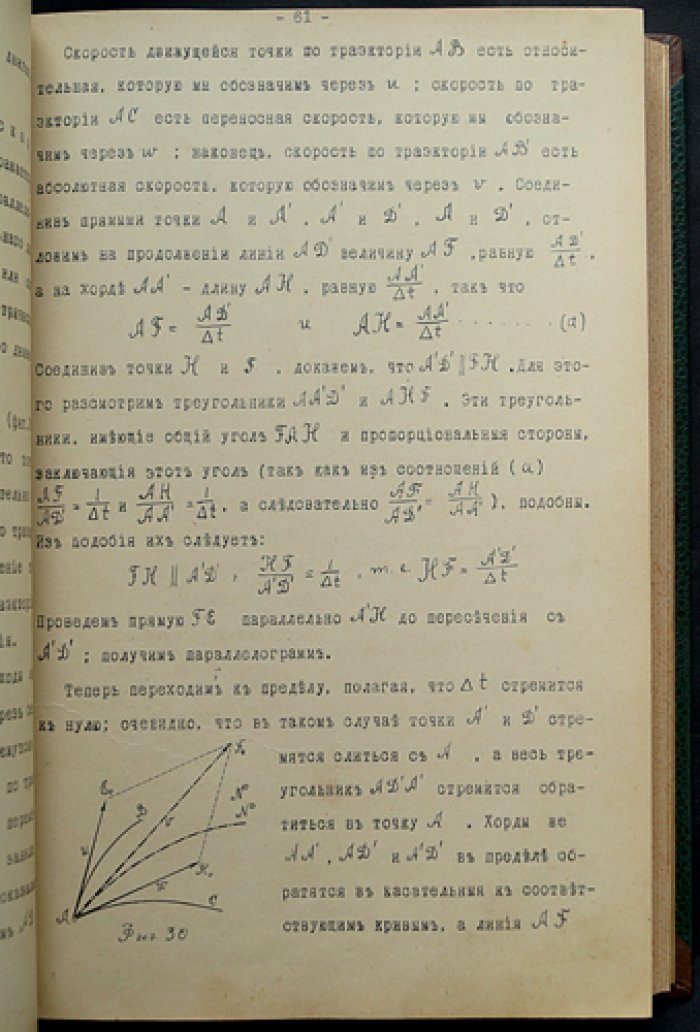 - 61 -
Скорость движущейся точки по траэкторіи AB есть относи-
тельная, которую мы обозначимъ черезъ u ; скорость по тра-
экторіи AC есть переносная скорость, которую мы обозна-
чимъ черезъ w ; наконецъ, скорость по траэкторіи AD' есть
абсолютная скорость, которую обозначимъ черезъ v . Соеди-
нивъ прямыми точки A и A' , A' и D' , A и D' , от-
ложимъ на продолженіи линіи AD' величину AF ,равную AD'/Δt ,
а на хордѣ AA' - длину AH , равную AA'/Δt , такъ что
AF = AD'/Δt и AH = AA'/Δt . . . . . . . (a)
Соединивъ точки H и F , докажемъ, что A'D' ∥ FH .Для это-
го разсмотримъ треугольники AA'D' и AHF . Эти треуголь-
ники, имѣющіе общій уголъ FAH и пропорціональныя стороны,
заключающія этотъ уголъ (такъ какъ изъ соотношеній (a)
AF/AD' = 1/Δt и AH/AA' = 1/Δt , а слѣдовательно AF/AD' = AH/AA' ), подобны.
Изъ подобія ихъ слѣдуетъ:
FH ∥ A'D' , HF/A'D' = 1/Δt , т. е HF = A'D'/Δt
Проведемъ прямую FE параллельно A'H до пересѣченія съ
A'D' ; получимъ параллелограммъ.
Теперь переходимъ къ предѣлу, полагая, что Δt стремится
къ нулю; очевидно, что въ такомъ случаѣ точки A' и D' стре-
мятся слиться съ A , а весь тре-
угольникъ AD'A' стремится обра-
титься въ точку A . Хорды же
AA' , AD' и A'D' въ предѣлѣ об-
ратятся въ касательныя къ соотвѣт-
ствующимъ кривымъ, а линія AF
E₀
F₀
B
N°
N°
u
v
w
H₀
A
C
Фиг 30